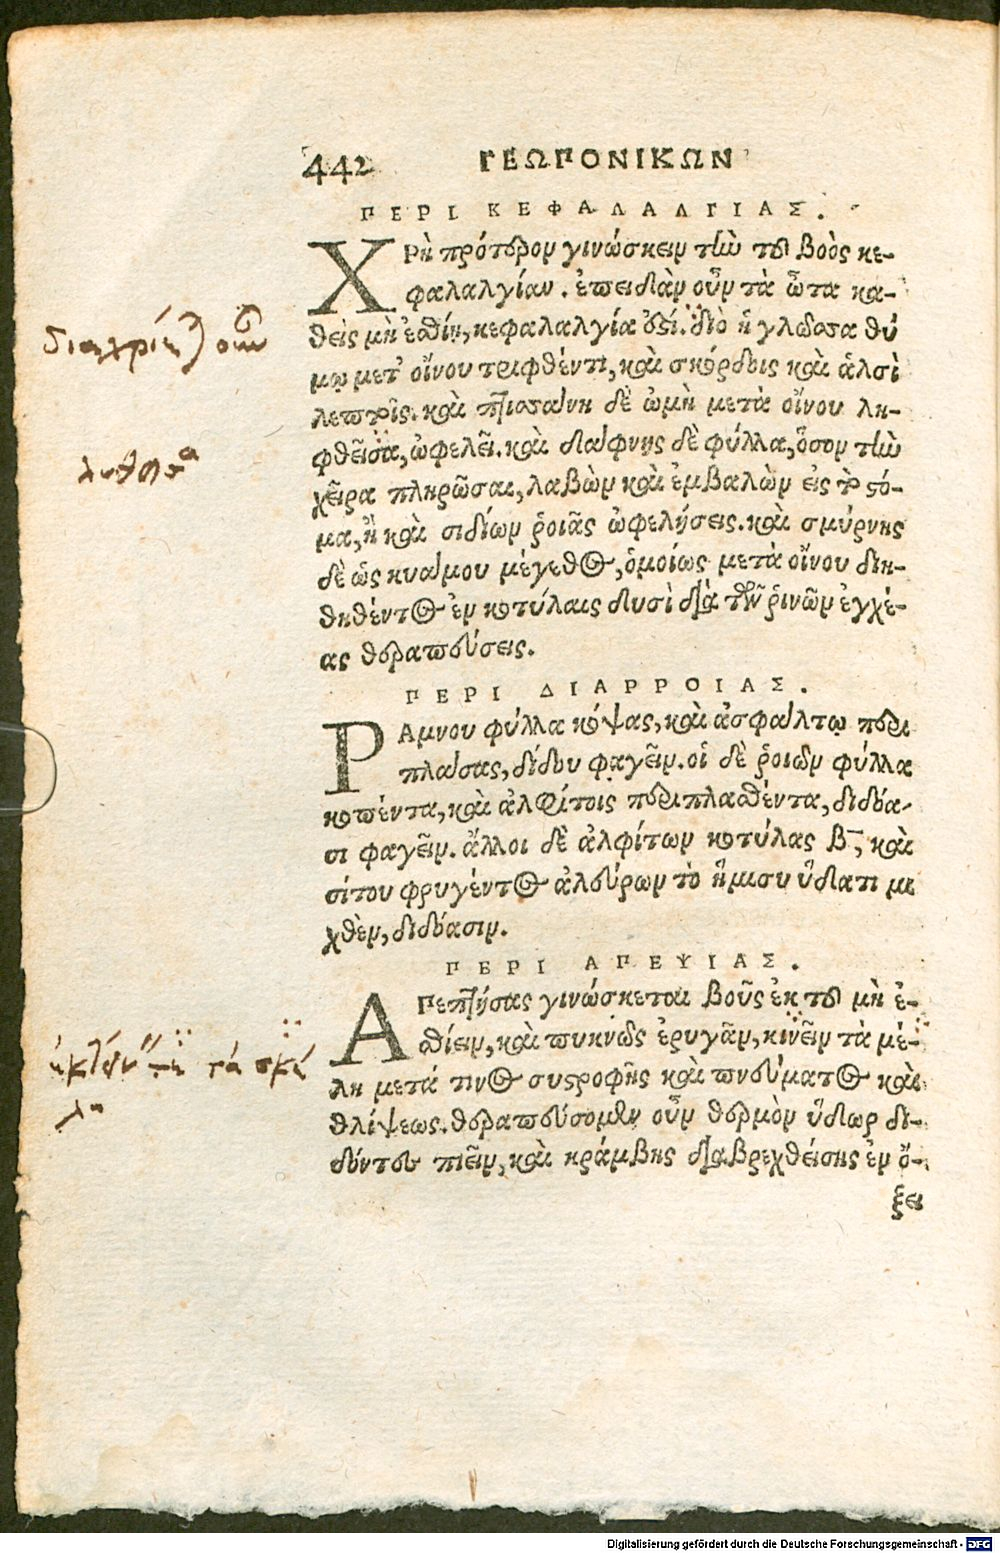 442 ΓΕΩΠΟΝΙΚΩΝ
ΠΕΡΙ ΚΕΦΑΛΑΛΓΙΑΣ.
ΧΡὴ πρότερον γινώσκειν τὴν τοῦ βοὸς κε-
φαλαλγίαν. ἐπειδὰν οὖν τὰ ὦτα κα-
θεὶς μὴ ἐσθίῃ, κεφαλαλγία ἐστί. διὸ ἡ γλῶσσα θύ
μῳ μετ' οἴνου τριφθέντι, καὶ σκόρδοις καὶ ἁλσὶ
λεπτοῖς. καὶ πτισάνη δὲ ὠμὴ μετὰ οἴνου λη-
φθεῖσα, ὠφελεῖ. καὶ δάφνης δὲ φύλλα, ὅσον τὴν
χεῖρα πληρῶσαι, λαβὼν καὶ ἐμβαλὼν εἰς τὸ στό-
μα, ἢ καὶ σιδίων ῥοιᾶς ὠφελήσεις. καὶ σμύρνης
δὲ ὡς κυάμου μέγεθος, ὁμοίως μετὰ οἴνου διη-
θηθέντος ἐν κοτύλαις δυσὶ διὰ τῶν ῥινῶν ἐγχέ-
ας θεραπεύσεις.
ΠΕΡΙ ΔΙΑΡΡΟΙΑΣ.
ΡΑμνου φύλλα κόψας, καὶ ἀσφάλτῳ περι
πλάσας, δίδου φαγεῖν. οἱ δὲ ῥοιῶν φύλλα
κοπέντα, καὶ ἀλφίτοις περιπλασθέντα, διδόα-
σι φαγεῖν. ἄλλοι δὲ ἀλφίτων κοτύλας β̅, καὶ
σίτου φρυγέντος ἀλεύρων τὸ ἥμισυ ὕδατι μι
χθὲν, διδόασιν.
ΠΕΡΙ ΑΠΕΨΙΑΣ.
ΑΠεπτήσας γινώσκεται βοῦς ἐκ τοῦ μὴ ἐ-
σθίειν, καὶ πυκνῶς ἐρυγᾶν, κινεῖν τὰ μέ-
λη μετά τινος συστροφῆς καὶ πνεύματος καὶ
θλίψεως. θεραπεύσομεν οὖν θερμὸν ὕδωρ δι-
δόντες πιεῖν, καὶ κράμβης διαβρεχθείσης ἐν ὄ-
ξει
τὰ σκέ
λη
Digitalisierung gefördert durch die Deutsche Forschungsgemeinschaft - DFG